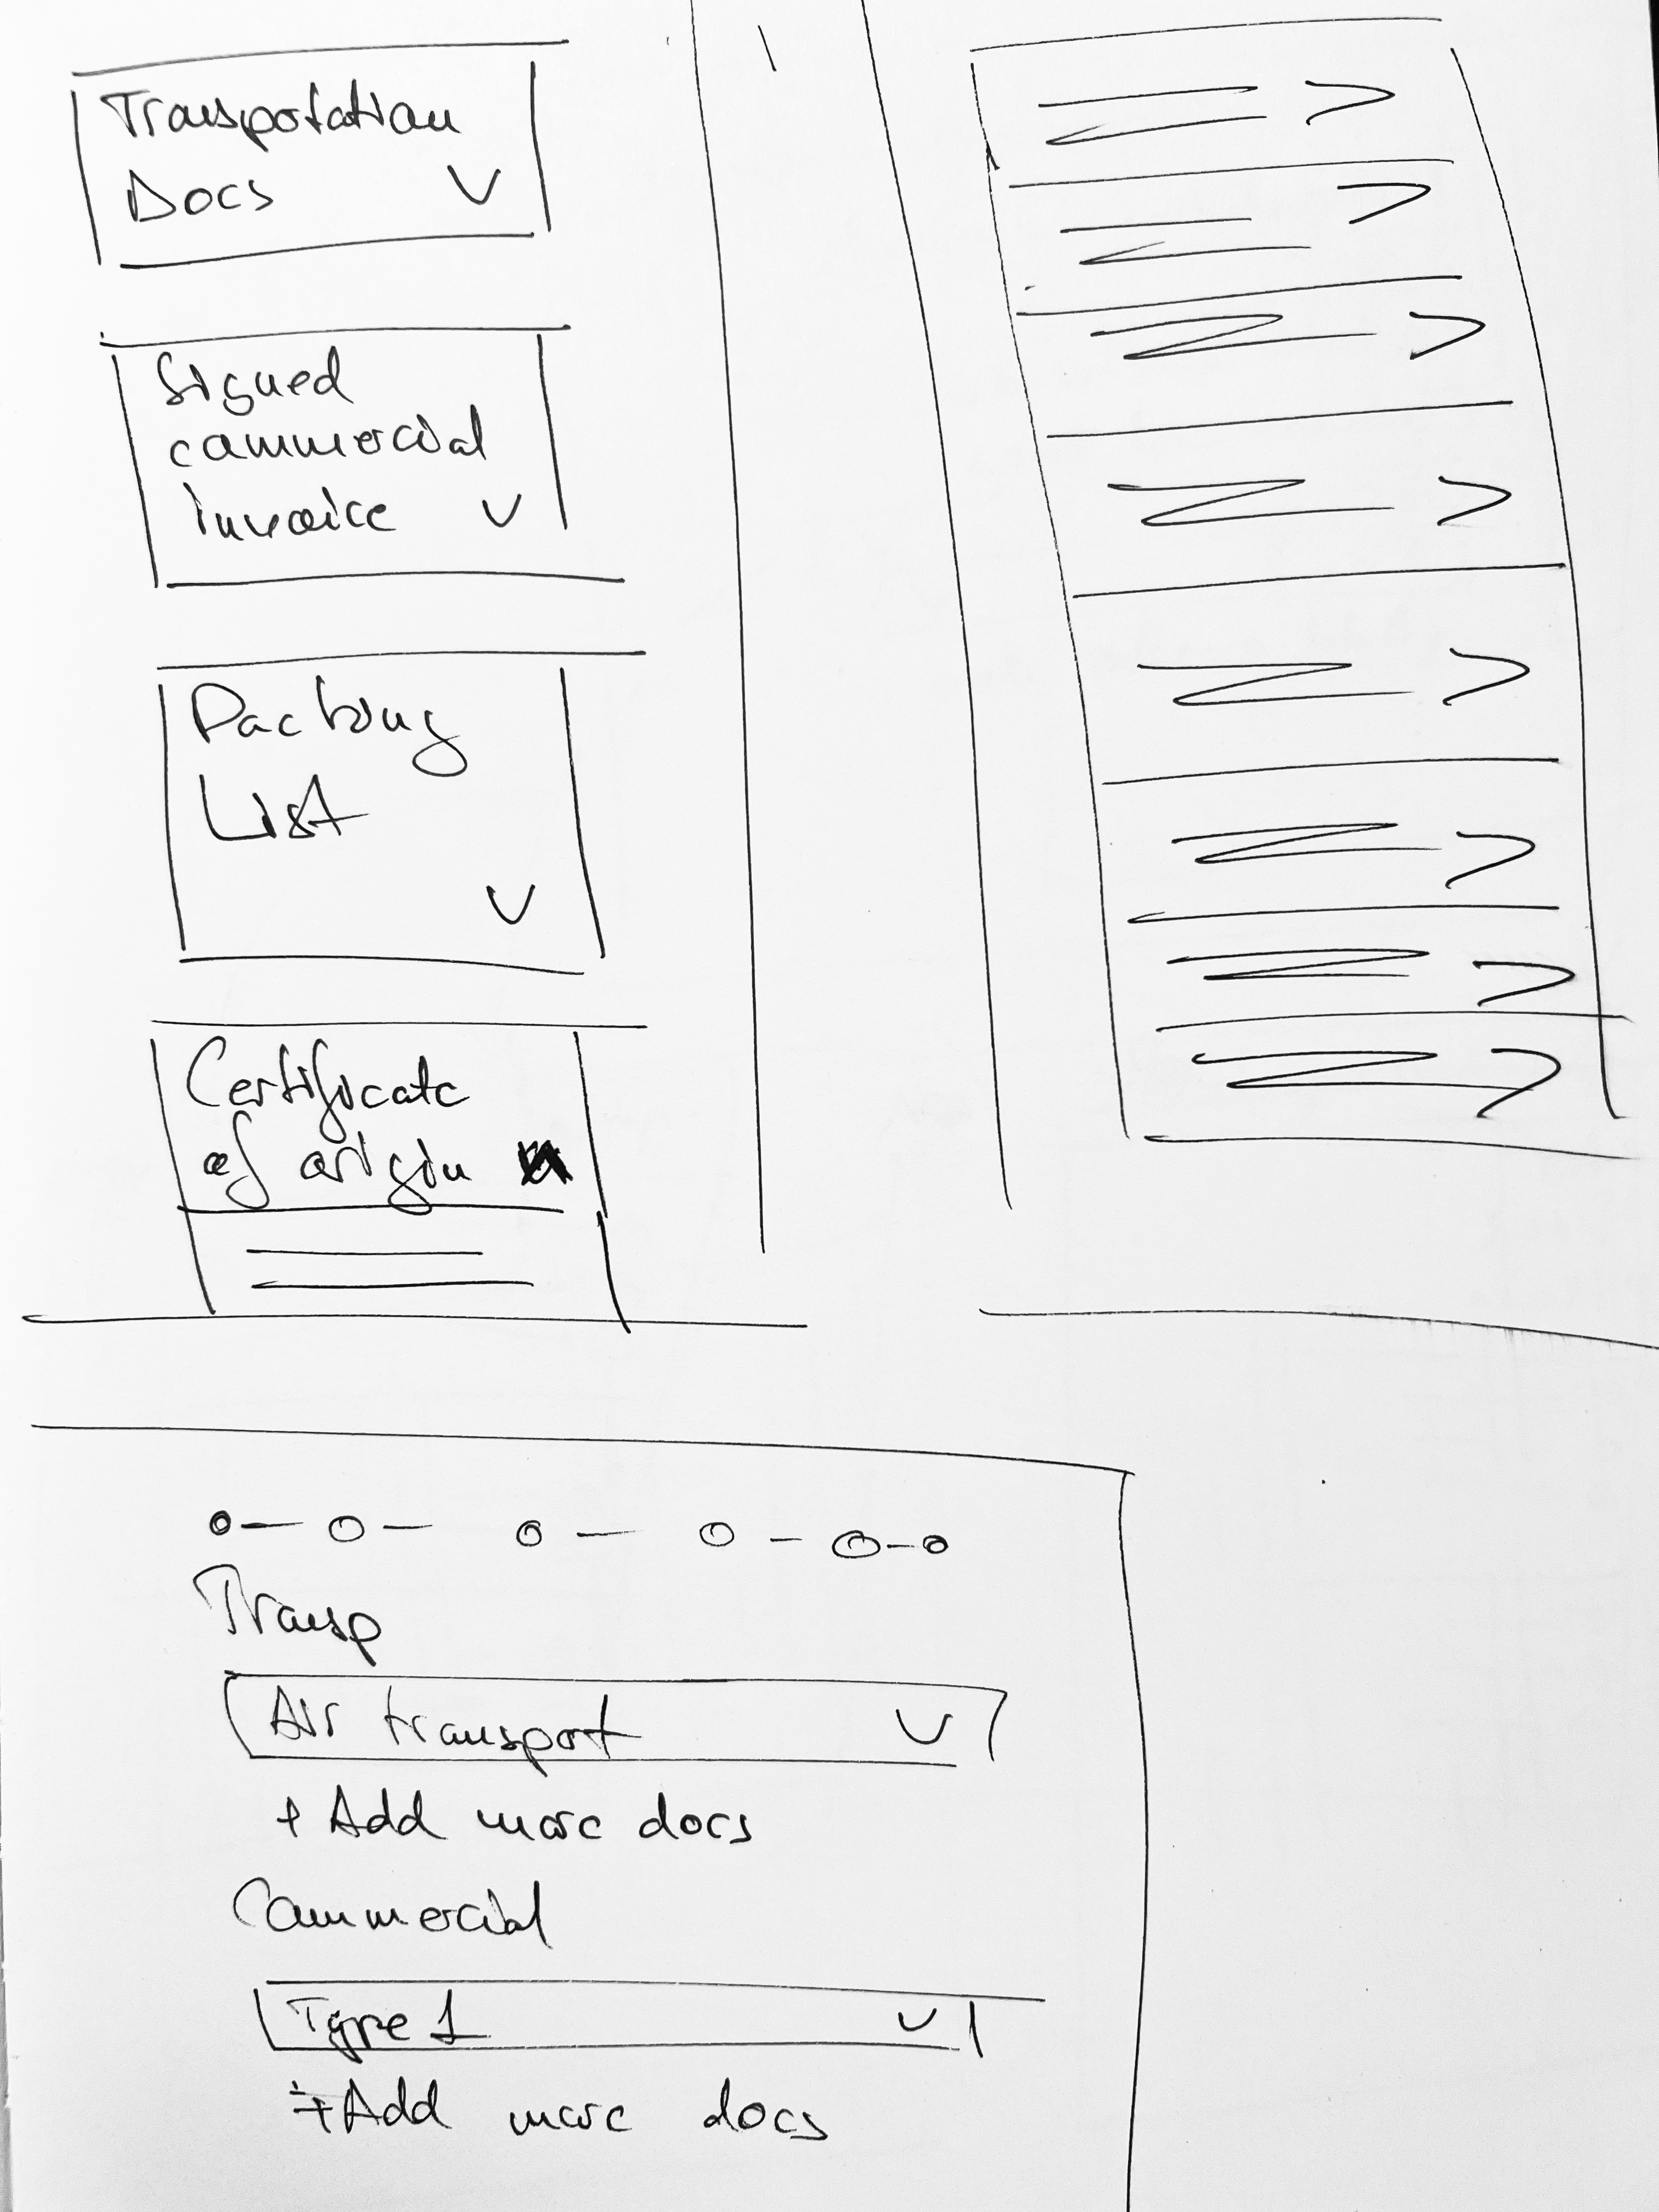 Transpotation
Docs
Signed
commercial
invoice
Packing
List
Certificate
of origin
Transp
Air transport
+ Add more docs
Commercial
Type 1
+ Add more docs